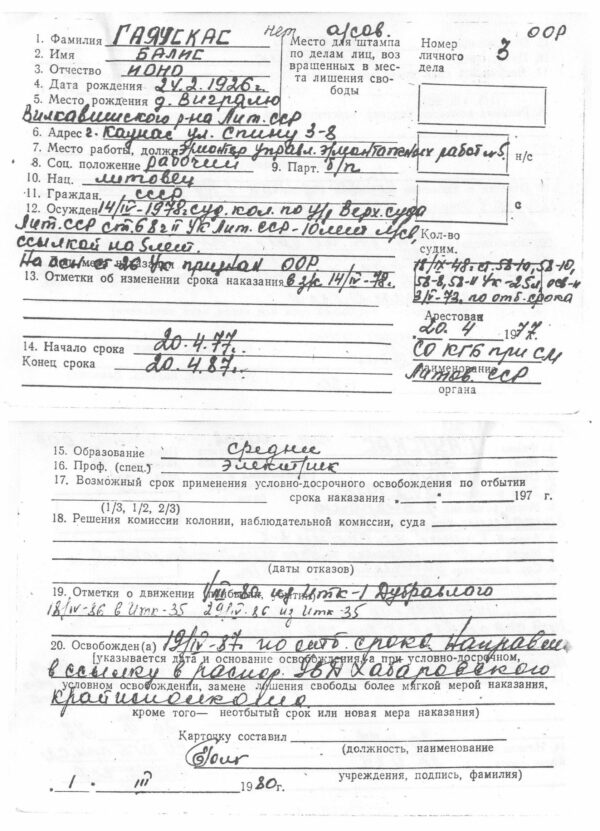 нет а/сов. ООР
1. Фамилия ГАЯУСКАС
2. Имя БАЛИС
3. Отчество ИОНО
Место для штампа
по делам лиц, воз
вращенных в мес-
та лишения сво-
боды
Номер
личного
дела
3
4. Дата рождения 24.2.1926 г.
5. Место рождения д. Виграляю
Вилкавишкского р-на Лит. ССР
6. Адрес г. Каунас ул. Спину 3-8
7. Место работы, должн Эл/монтер управл. Эл/монтажных работ №5. н/с
8. Соц. положение рабочий 9. Парт. б/п
10. Нац. литовец
11. Граждан. СССР
с
12. Осужден 14/IV-1978г. суд. кол. по у/д Верх. суда
Лит. ССР ст. 68 ч II УК Лит. ССР - 10 лет л/св,
ссылкой на 5 лет.
На осн ст 26 УК признан ООР
13. Отметки об изменении срока наказания в з/к 14/IV-78г.
Кол-во
судим.
18/IX-48г. ст. 58-1а, 58-10,
58-8, 58-11 УК - 25 л, осв-н
2/IV-73, по отб. срока
Арестован
20. 4 1977г.
СО КГБ при СМ
наименование
Литов. ССР
органа
14. Начало срока 20.4.77.
Конец срока 20.4.87г.
15. Образование средние
16. Проф. (спец.) электрик
17. Возможный срок применения условно-досрочного освобождения по отбытии
срока наказания „ “ 197 г.
(1/3, 1/2, 2/3)
18. Решения комиссии колонии, наблюдательной комиссии, суда
(даты отказов)
19. Отметки о движении 1/III-80 из ИТК-1 Дубравлаго
18/IV-86 в ИТК-35 29/IV-86 из ИТК-35
20. Освобожден(а) 19/IV-87 по отб. срока. Направлен
(указывается дата и основание освобождения, а при условно-досрочном,
в ссылку в распор. УВД Хабаровского
условном освобождении, замене лишения свободы более мягкой мерой наказания,
крайисполкома
кроме того— неотбытый срок или новая мера наказания)
Карточку составил
(должность, наименование
учреждения, подпись, фамилия)
1 III 1980г.